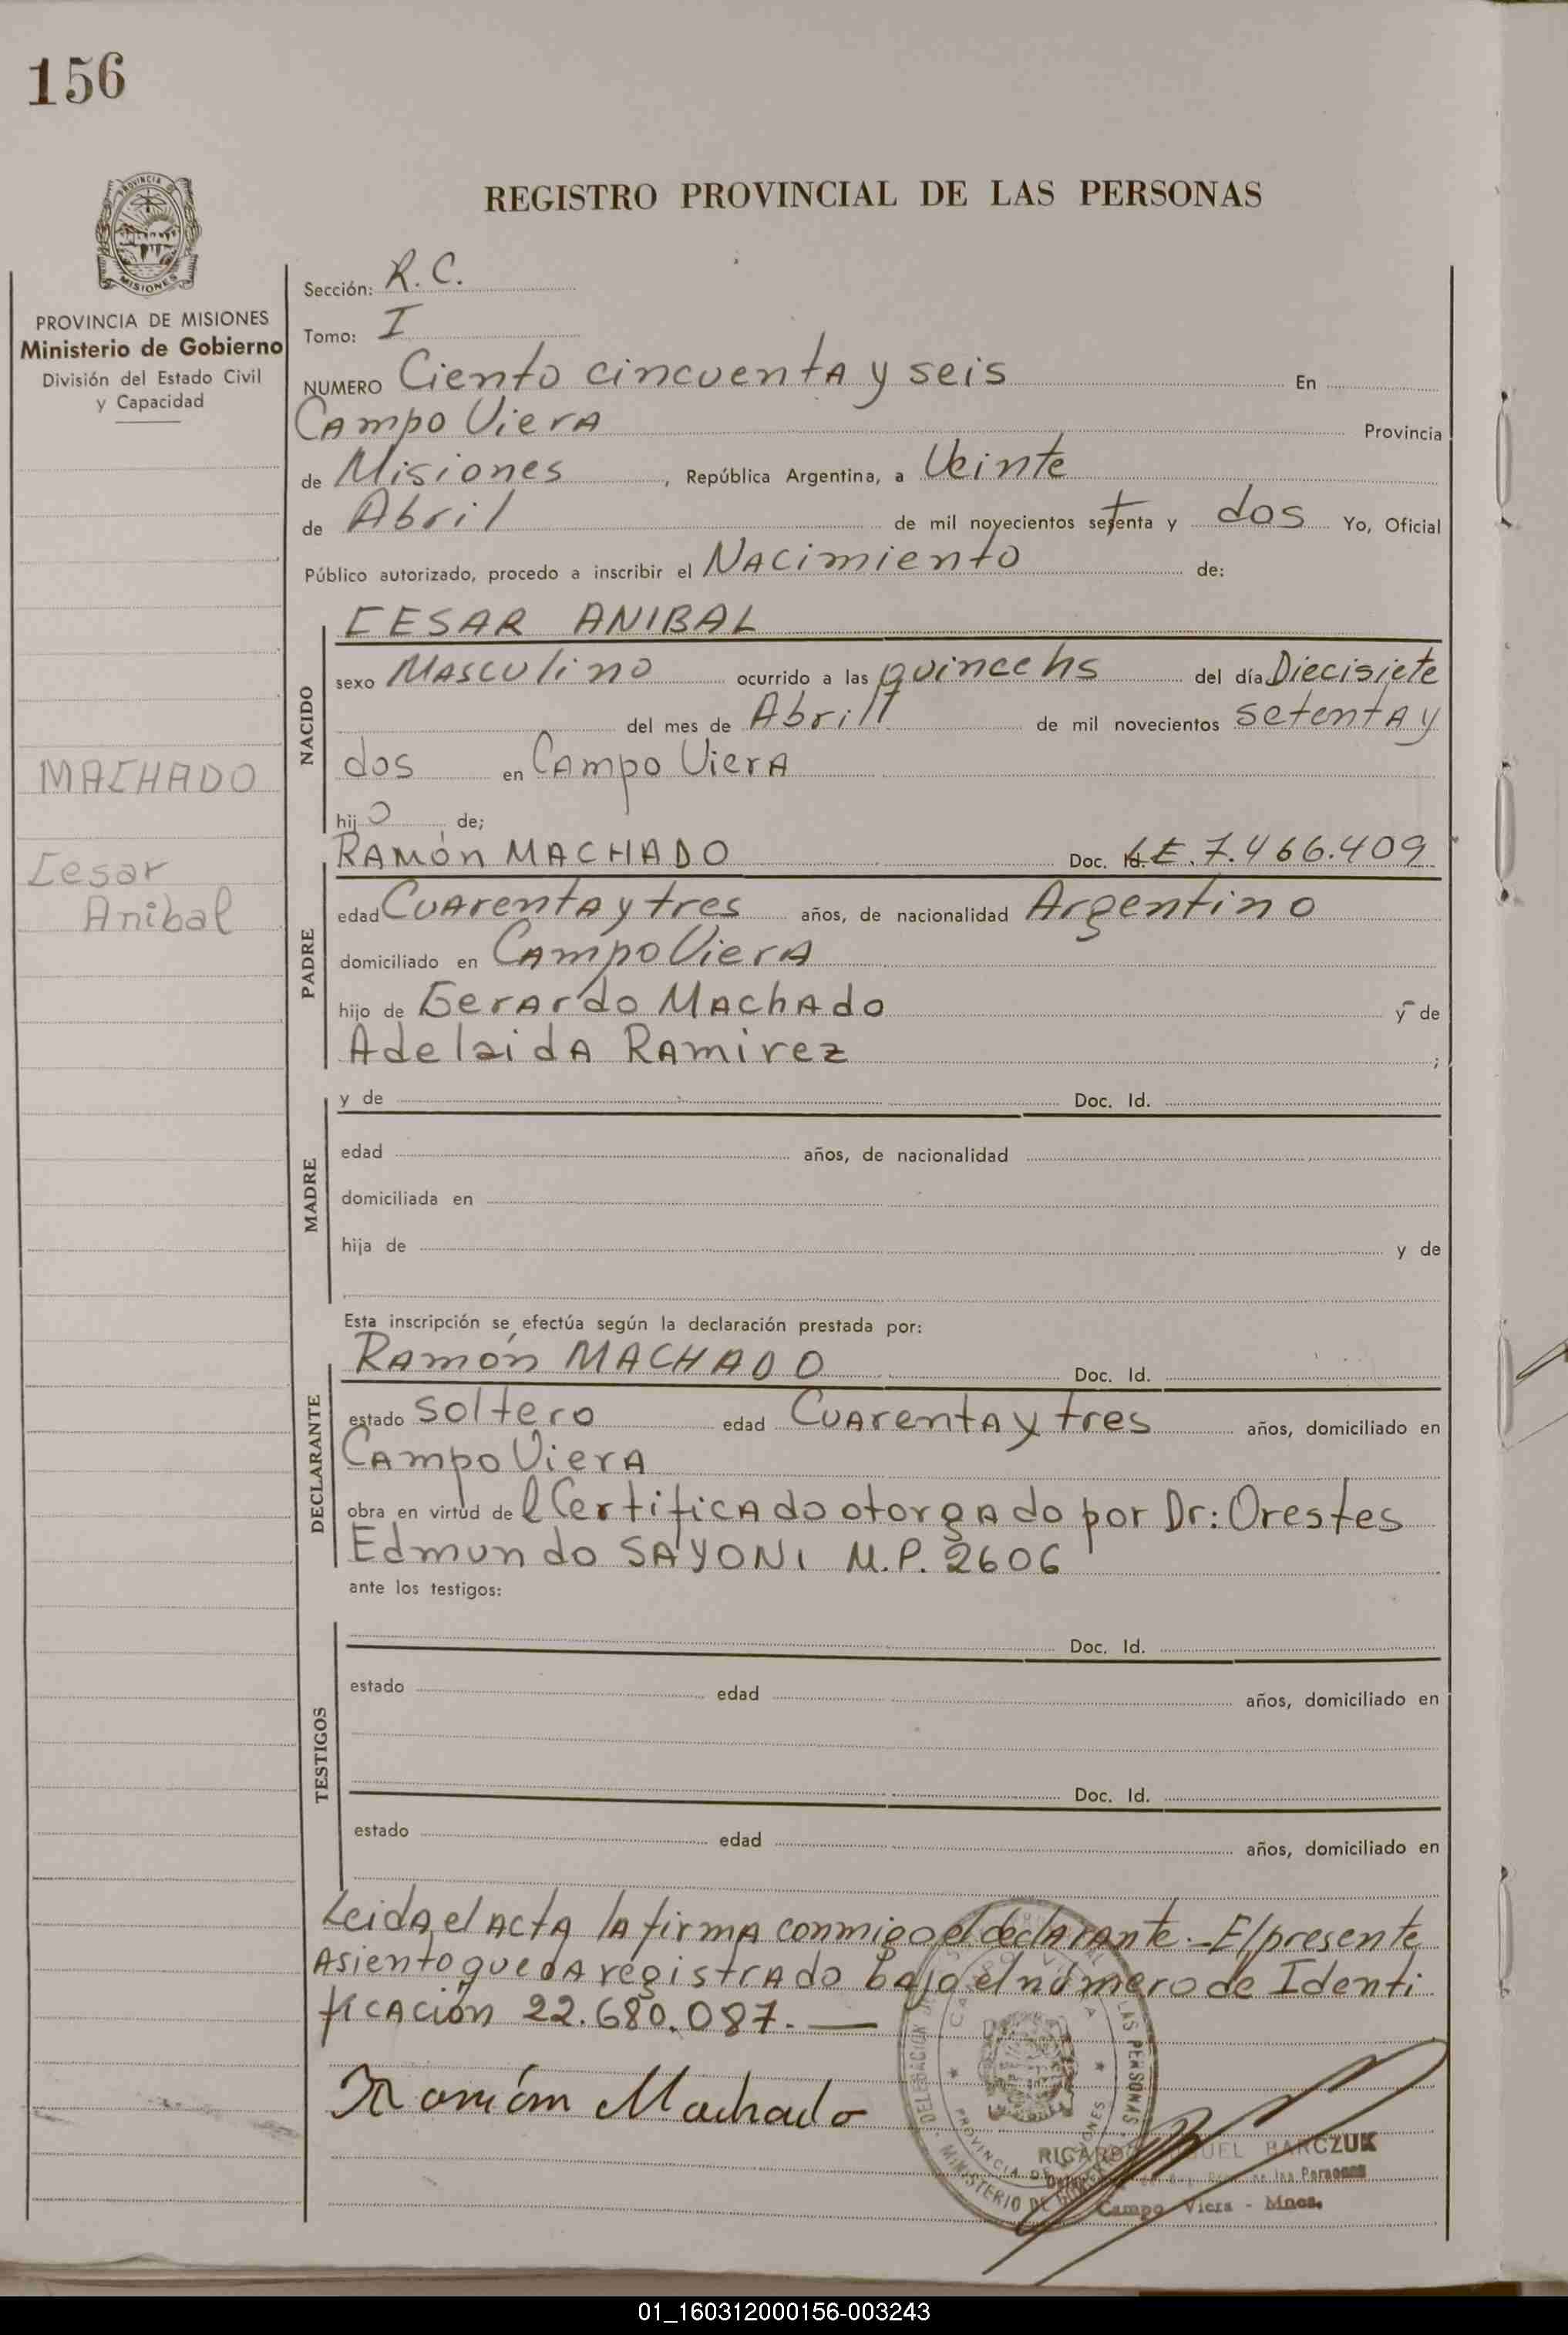 156
PROVINCIA DE
MISIONES
PROVINCIA DE MISIONES
Ministerio de Gobierno
División del Estado Civil
y Capacidad
MACHADO
Cesar
Anibal
REGISTRO PROVINCIAL DE LAS PERSONAS
Sección: R.C.
Tomo: I
NUMERO Ciento cincuenta y seis En
Campo Viera Provincia
de Misiones, República Argentina, a Veinte
de Abril de mil novecientos setenta y dos Yo, Oficial
Público autorizado, procedo a inscribir el Nacimiento de:
NACIDO
CESAR ANIBAL
sexo Masculino ocurrido a las quince hs del día Diecisiete
del mes de Abril de mil novecientos setenta y
dos en Campo Viera
hijo de;
PADRE
Ramón MACHADO Doc. Id. LE. 7.466.409
edad Cuarenta y tres años, de nacionalidad Argentino
domiciliado en Campo Viera
hijo de Gerardo Machado y de
Adelaida Ramirez ;
MADRE
y de Doc. Id.
edad años, de nacionalidad
domiciliada en
hija de y de
Esta inscripción se efectúa según la declaración prestada por:
DECLARANTE
Ramón MACHADO Doc. Id.
estado soltero edad Cuarenta y tres años, domiciliado en
Campo Viera
obra en virtud de l Certificado otorgado por Dr: Orestes
Edmundo SAYONI M.P. 2606
ante los testigos:
TESTIGOS
Doc. Id.
estado edad años, domiciliado en
Doc. Id.
estado edad años, domiciliado en
Leida el acta la firma conmigo el declarante.- El presente
Asiento queda registrado bajo el número de Identi
ficación 22.680.087.—
Ramón Machado
DELEGACION LAS PERSONAS
PROVINCIA DE MISIONES
MINISTERIO DE
RICARDO MIGUEL BARCZUK
de las Personas
Campo Viera - Mnes.
01_160312000156-003243